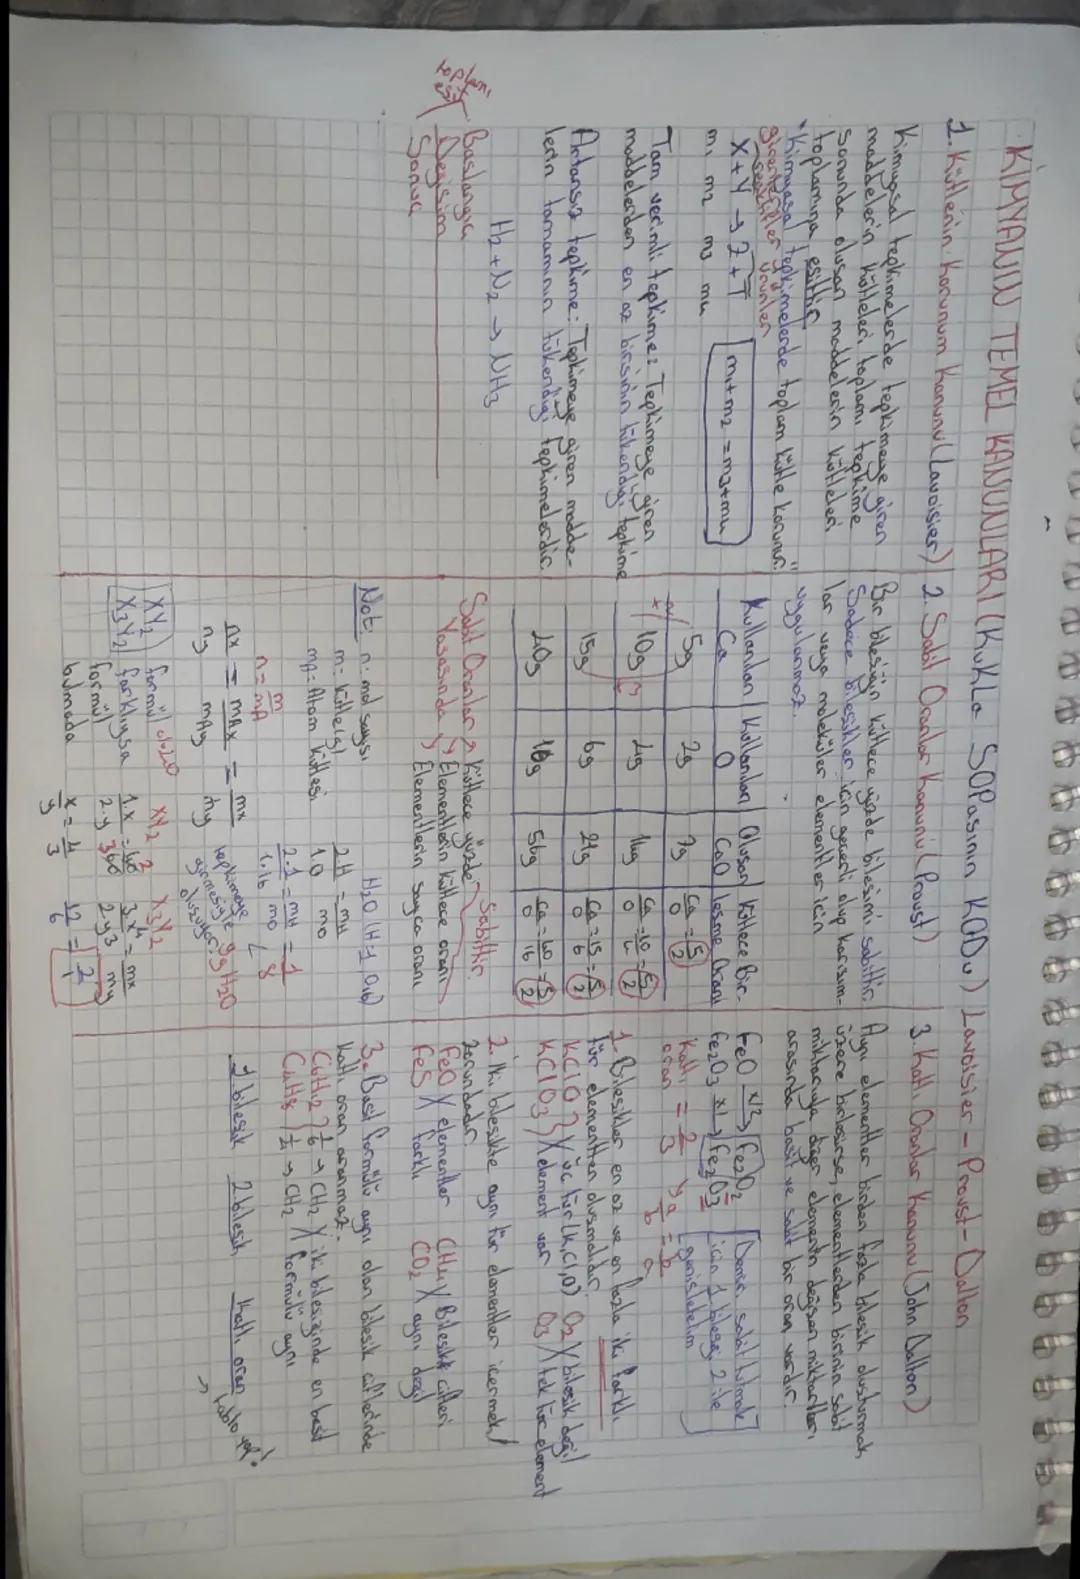 KİMYANIN TEMEL KANUNLARI (KuKLa SOPasının KODu) Lavoisier - Proust - Dalton
1. Kütlenin Korunum Kanunu (Lavoisier)
Kimyasal tepkimelerde tepkimeye giren
maddelerin kütleleri toplamı tepkime
sonunda oluşan maddelerin kütleleri
toplamına eşittir
"Kimyasal tepkimelerde toplam kütle korunur."
girenler ürünler
X + Y → Z + T
m1 m2 m3 m4
m1+m2 = m3+m4
Tam verimli tepkime: Tepkimeye giren
maddelerden en az birisinin tükendiği tepkime
Artansız tepkime: Tepkimeye giren madde-
lerin tamamının tükendiği tepkimelerdir.
H2 + N2 → NH3
Başlangıç
Değişim
Sonuç
2. Sabit Oranlar Kanunu (Proust)
Bir bileşiğin kütlece yüzde bileşimi sabittir.
Sadece bileşikler için geçerli olup karışım-
lar veya moleküler elementler için
uygulanmaz.
Kullanılan Ca
Kullanılan O
Oluşan CaO
Kütlece Bir-leşme Oranı
5g 2g 7g Ca/O = 5/2
10g 4g 14g Ca/O = 10/4 = 5/2
15g 6g 21g Ca/O = 15/6 = 5/2
20g 16g 56g Ca/O = 40/16 = 5/2
Sabit Oranlar → Kütlece yüzde
Yasasında → Elementlerin kütlece oranı
→ Elementlerin sayıca oranı
Sabittir.
Not: n: mol sayısı
m: Kütle (g)
mA: Atom kütlesi
n = m/mA
H2O (H=1, O=16)
2.H/1.O = mH/mO
2.1/1.16 = mH/mO = 1/8
tepkimeye girmesiyle 9g H2O oluşuyor.
nx/ny = mAx/mAy = mx/my
XY2
X3Y2
formül
farklıysa
formül
bulmada
XY2 X3Y2
x/y = 4/3
12/6 = 2/1
3. Katlı Oranlar Kanunu (John Dalton)
Aynı elementler birden fazla bileşik oluşturmak
üzere birleşirse, elementlerden birinin sabit
miktarıyla diğer elementin değişen miktarları
arasında basit ve sabit bir oran vardır.
FeO x/2→ Fe2O2
Fe2O3 x1→ Fe2O3
Demir sabit tutmak
için 1. bileşiği 2 ile
genişletelim
Katlı oran = 2/3
a/b = b/a
1. Bileşikler en az ve en fazla iki farklı
tür elementten oluşmalıdır.
KClO } X üç tür (K, Cl, O)
KClO3 } X element var
O2 X bileşik değil
O3 X tek tür element
2. İki bileşikte aynı tür elementler içermek
zorundadır.
FeO X elementler
FeS X farklı
CH4 X Bileşik çiftleri
CO2 X aynı değil
3. Basit formülü aynı olan bileşik çiftlerinde
katlı oran aranmaz.
C6H12 } 1/6 → CH2 X iki bileşiğinde en basit
C4H8 } 1/4 → CH2 X formülü aynı
1. bileşik 2. bileşik Katlı oran
→ tablo yap!